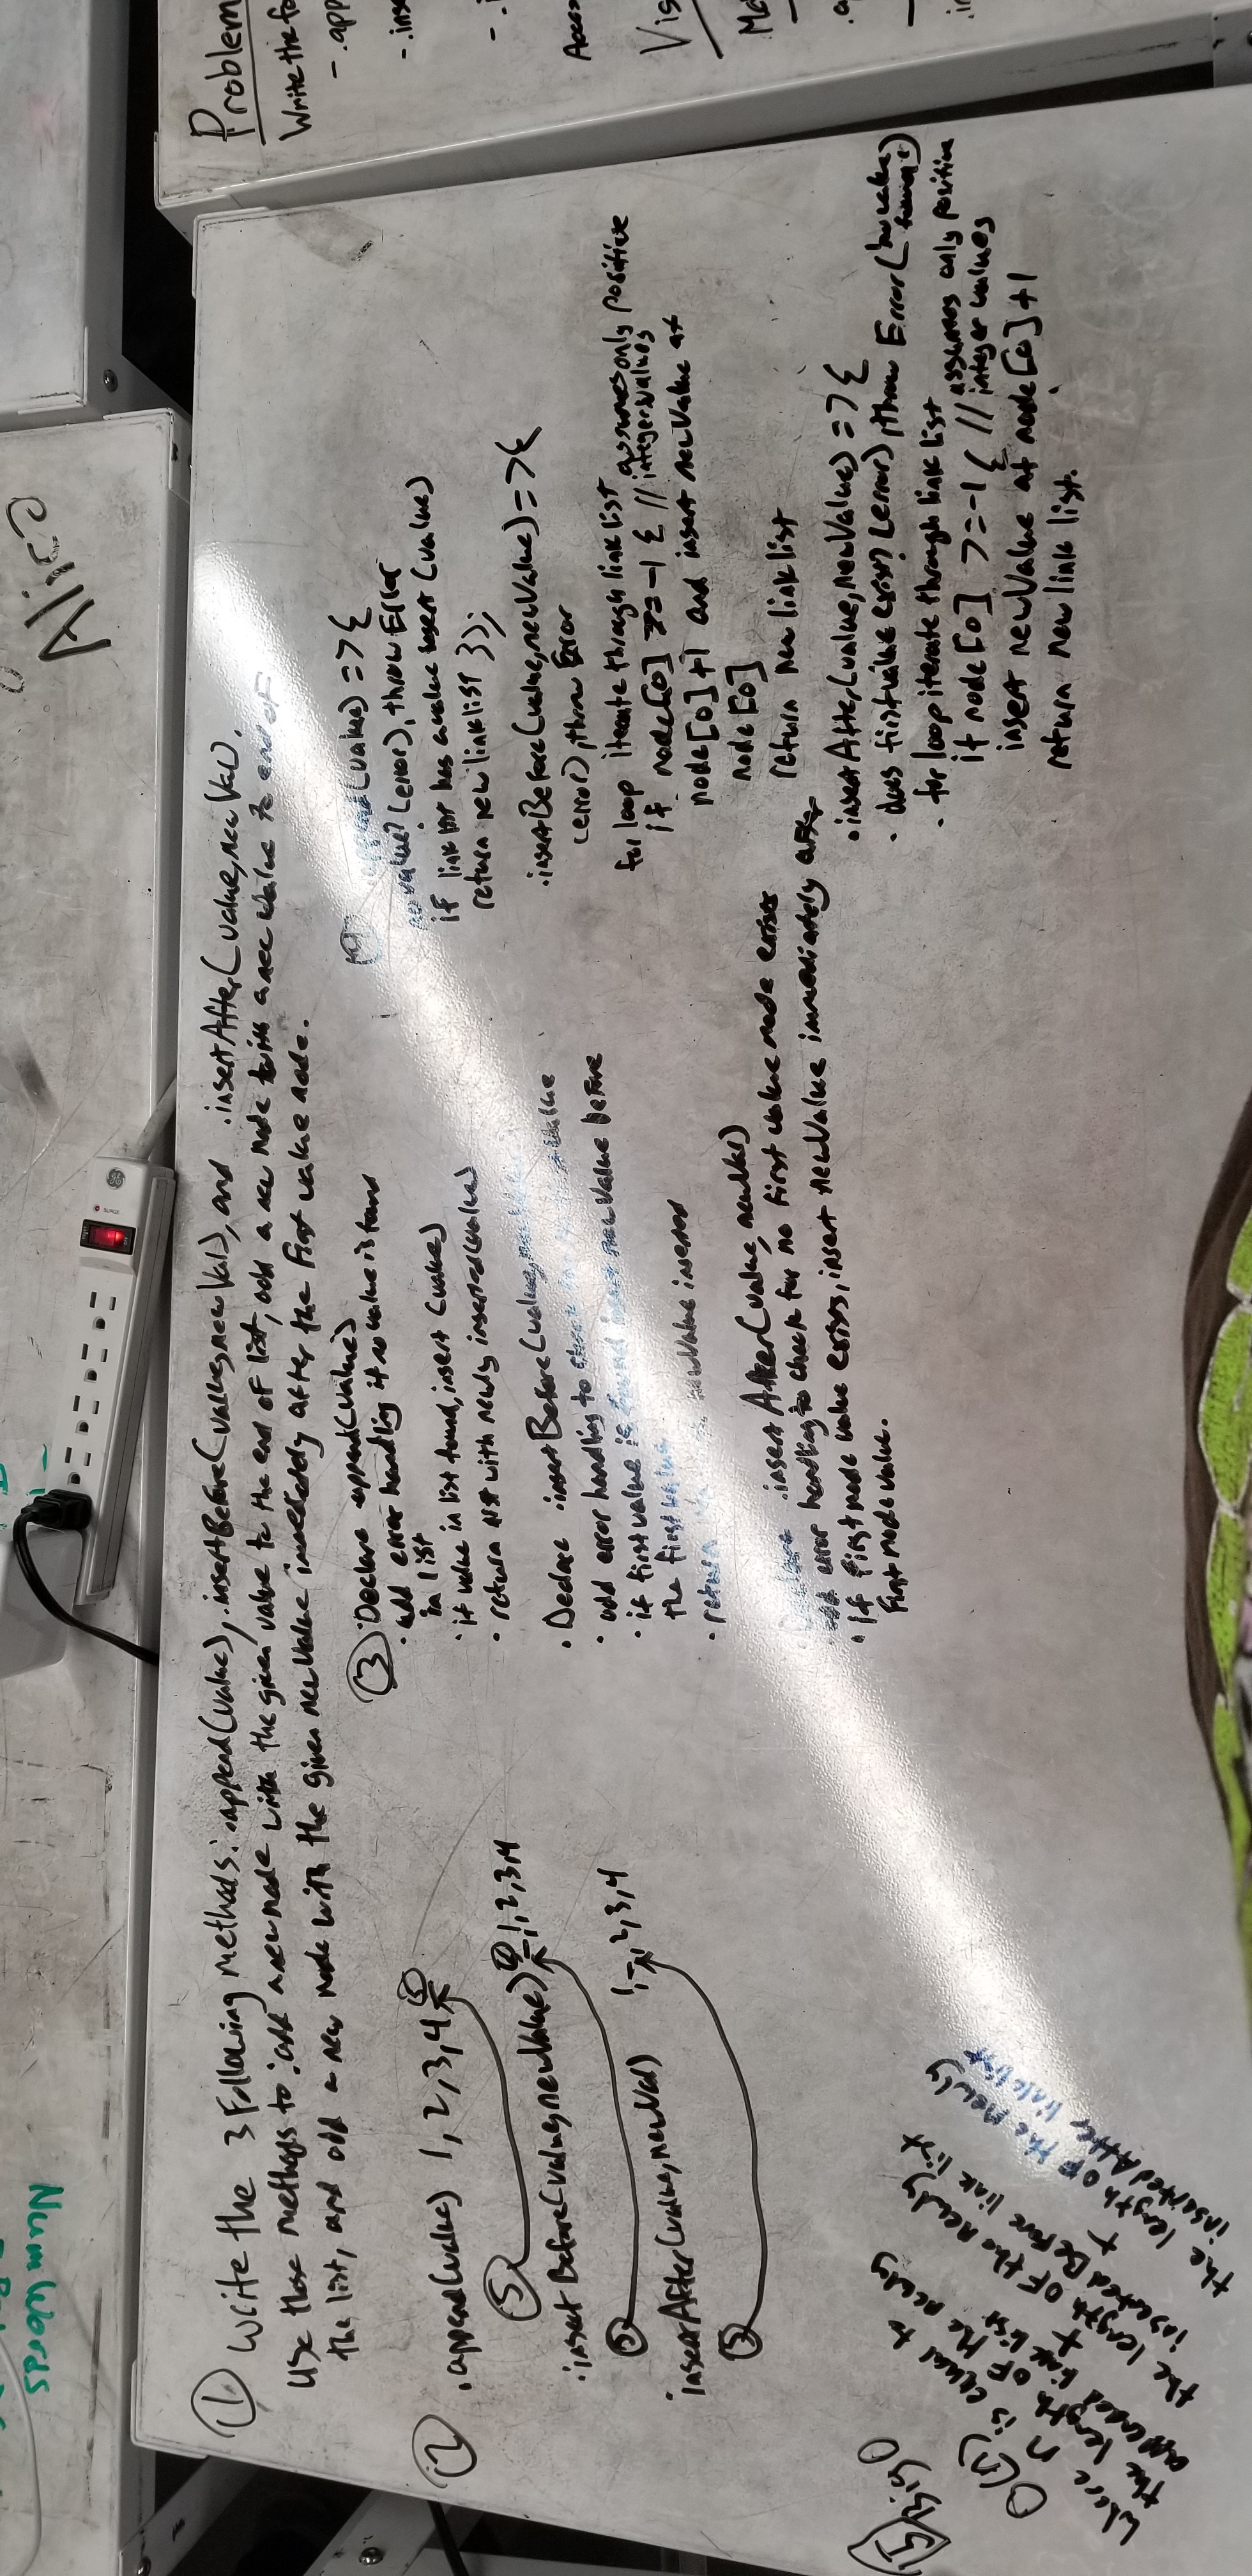 ① Write the 3 following methods: .append(value), .insertBefore(value, newVal), and .insertAfter(value, newVal).
Use those methods to: add a new node with the given value to the end of list, add a new node with a new value to end of
the list, and add a new node with the given newValue immediately after the first value node.
②
.append(value) 1, 2, 3, 4 ⑤
⑤
.insertBefore(value, newValue) 1, 2, 3, 4
insertAfter(value, newVal) 1, 2, 3, 4
③ Declare append(value)
. add error handling if no value is found
in list
. if value in list found, insert (value)
. return list with newly inserted (value)
. Declare .insertBefore(value, newValue)
. add error handling to check
. if first value is found insert newValue before
the first value
. return newValue inserted
. Declare .insertAfter(value, newVal)
. add error handling to check for no first value node exists
. If first node value exists, insert newValue immediately after
first node value.
④ append(value) => {
no value? (error), throw Error
if link list has a value insert (value)
return new link list });
.insertBefore(value, newValue) => {
(error), throw Error
for loop iterate through link list
if node[0] >= -1 { // assumes only positive
integer values
node[0]+1 and insert newValue at
node[0]
return new link list
.insertAfter(value, newValue) => {
. does first value exist? (error), throw Error (no value
found)
. for loop iterate through link list
if node[0] >= -1 { // assumes only positive
integer values
insert newValue at node[0]+1
return new link list.
Big O
O(n)
where n is equal to
the length of the newly
appended link list
+
the length of the newly
inserted Before link list
+
the length of the newly
inserted After link list
Problem
Write the fo
- .app
Num Words
GE
SURGE